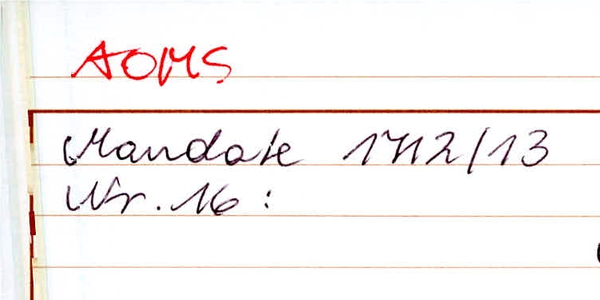 AOMS
Mandate 1712/13
Nr. 16: